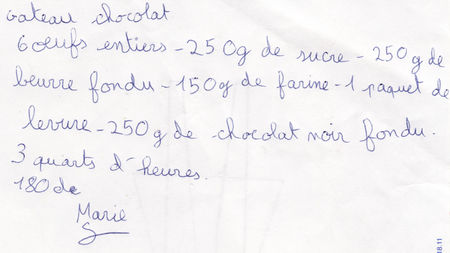 Gateau chocolat
6 oeufs entiers - 250g de sucre - 250g de
beurre fondu - 150g de farine - 1 paquet de
levure - 250g de chocolat noir fondu.
3 quarts d'heures.
180 de
Marie
18.11